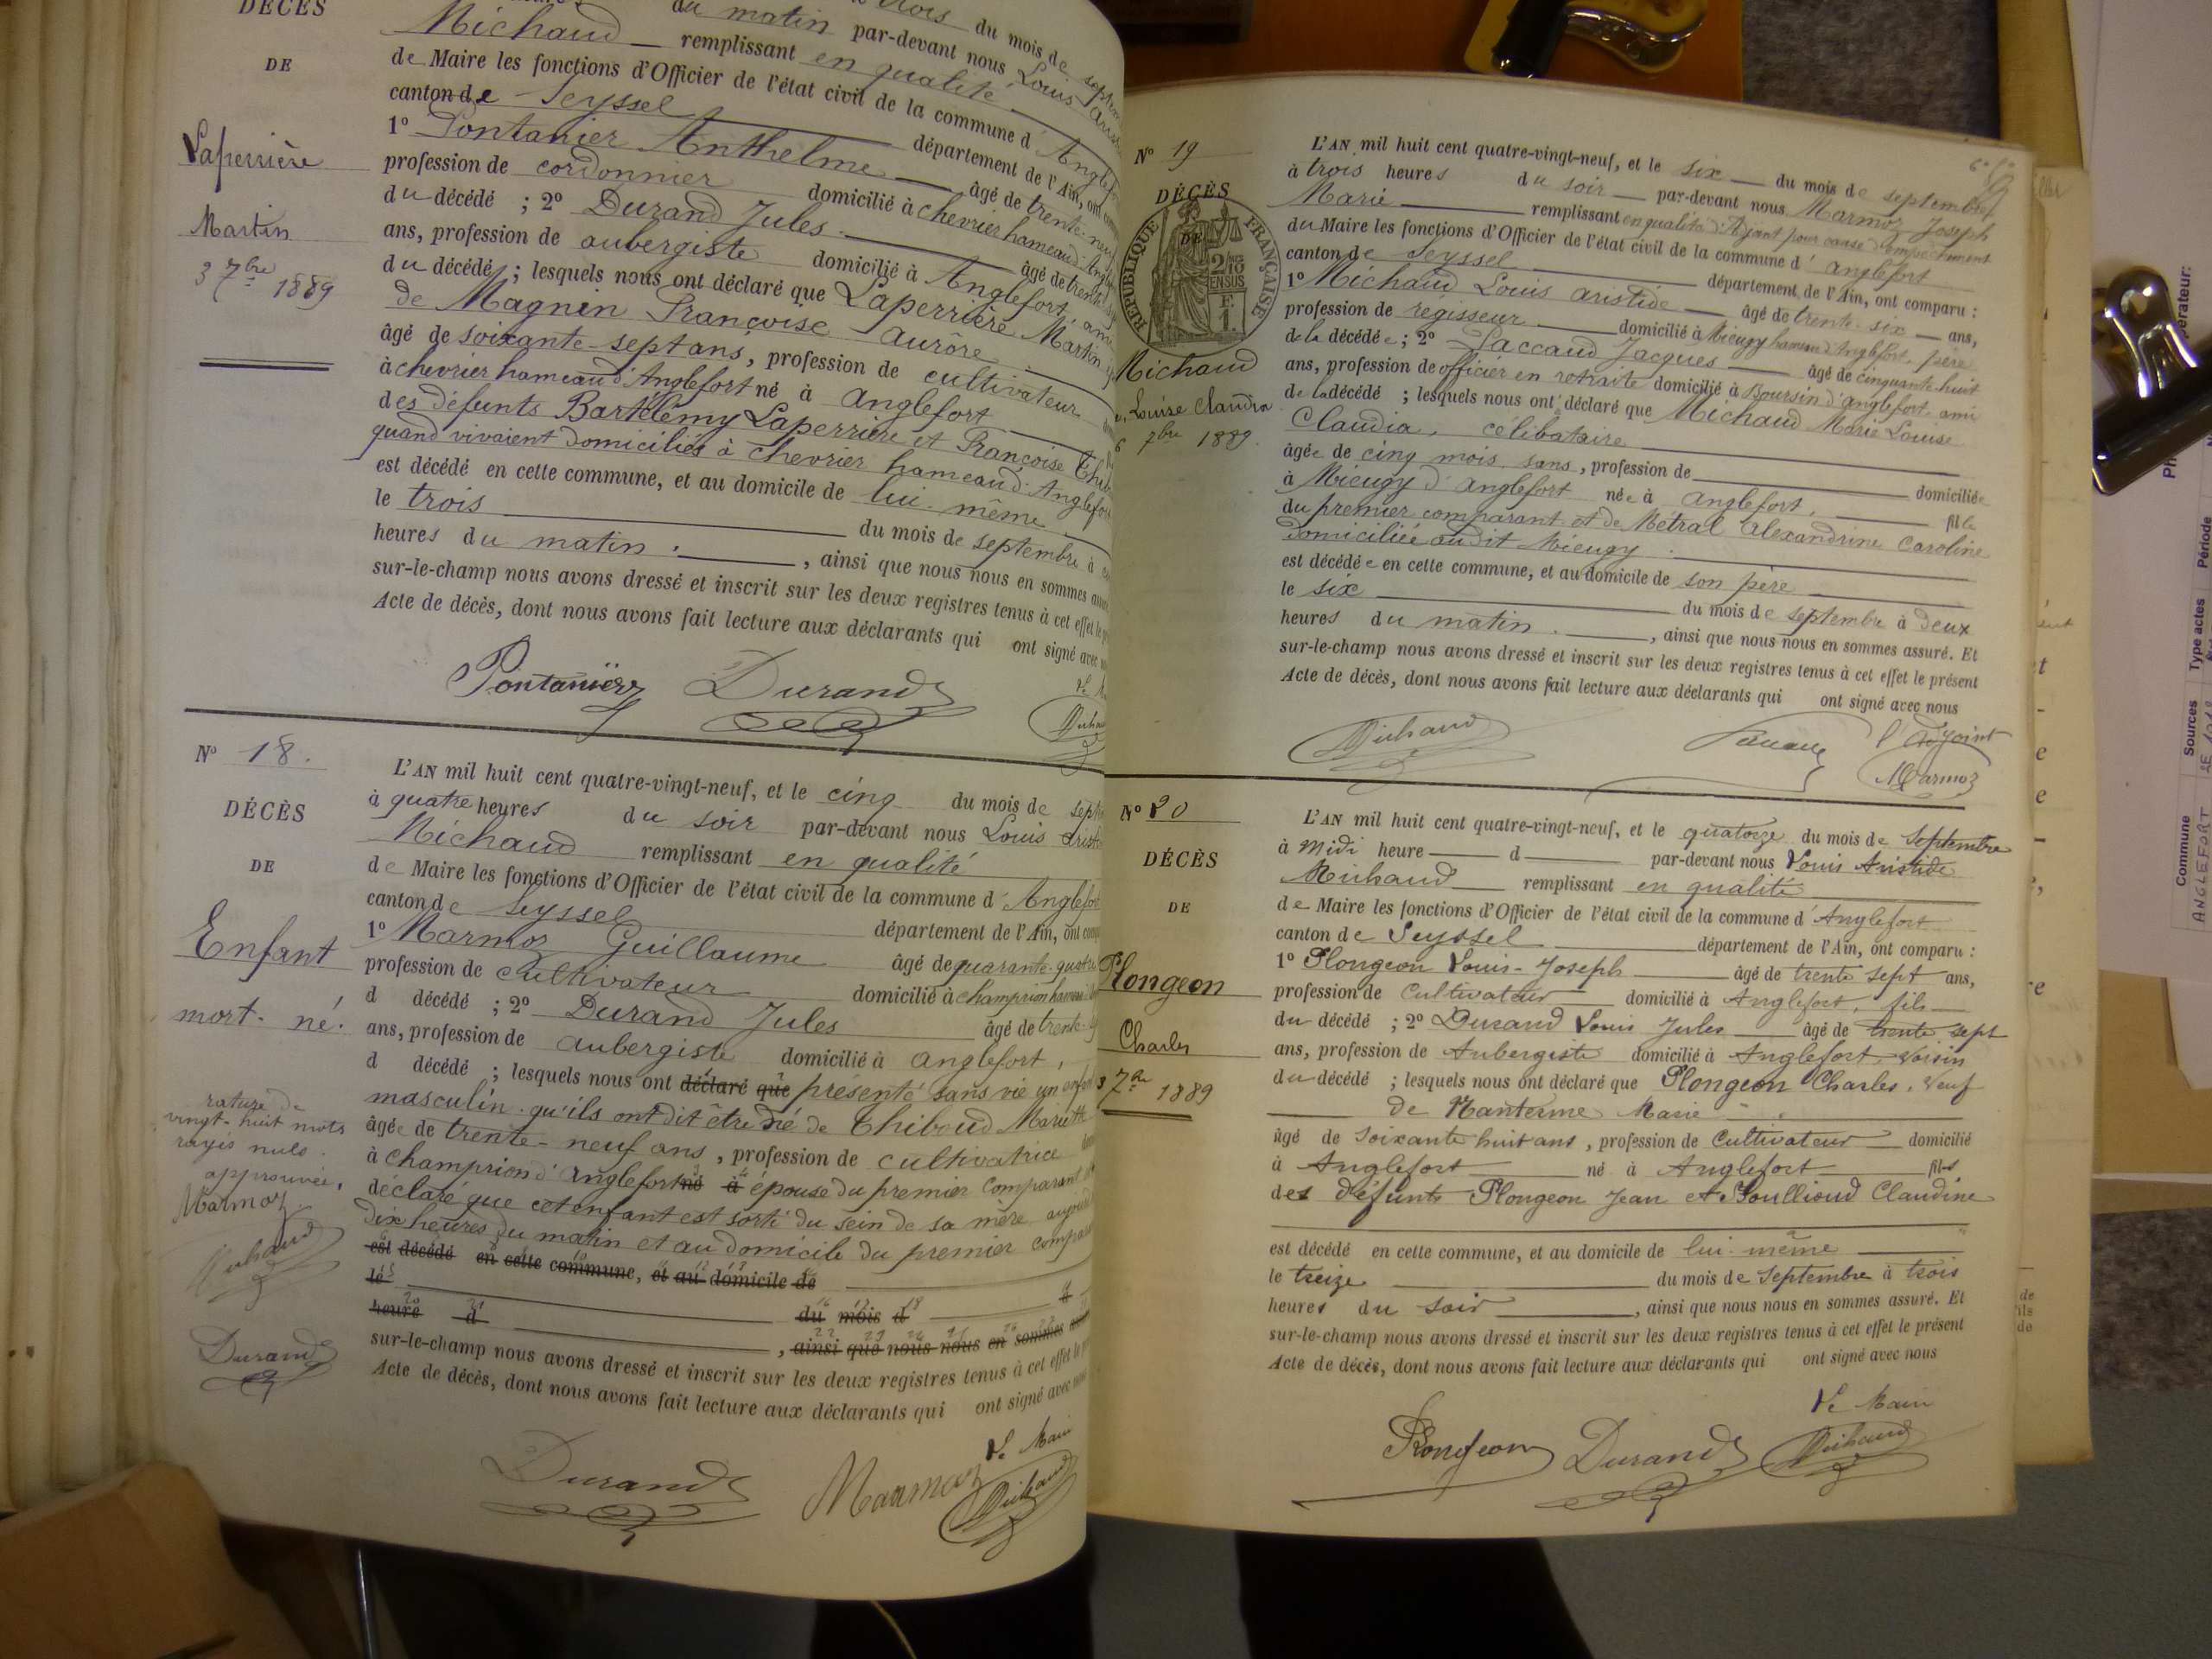 DÉCÈS
DE
Laperrière
Martin
3 7bre 1889
du matin par-devant nous Louis
du mois de
Michaud remplissant en qualité
de Maire les fonctions d'Officier de l'état civil de la commune d'
canton de Seyssel département de l'Ain, ont
1º Pontanier Anthelme âgé de trente-neuf
profession de cordonnier domicilié à chevrier hameau d'
du décédé ; 2º Durand Jules âgé de trente
ans, profession de aubergiste domicilié à Anglefort, ami
du décédé ; lesquels nous ont déclaré que Laperrière Martin
de Magnin Françoise Aurore
âgé de soixante-sept ans, profession de cultivateur
à chevrier hameau d'Anglefort né à Anglefort
des défunts Barthélemy Laperrière et Françoise
quand vivaient domiciliés à chevrier hameau d'Anglefort
est décédé en cette commune, et au domicile de lui-même
le trois du mois de septembre à
heures du matin, ainsi que nous nous en sommes
sur-le-champ nous avons dressé et inscrit sur les deux registres tenus à cet effet le
Acte de décès, dont nous avons fait lecture aux déclarants qui ont signé avec
Pontanier Durand
Nº 18.
DÉCÈS
DE
Enfant
mort-né.
rature de
vingt-huit mots
rayés nuls.
approuvée,
Marmoz
Michaud
Durand
L'AN mil huit cent quatre-vingt-neuf, et le cinq du mois de
à quatre heures du soir par-devant nous Louis
Michaud remplissant en qualité
de Maire les fonctions d'Officier de l'état civil de la commune d'Anglefort
canton de Seyssel département de l'Ain, ont
1º Marmoz Guillaume âgé de quarante-quatre
profession de cultivateur domicilié à champrion hameau
d décédé ; 2º Durand Jules âgé de trente
ans, profession de aubergiste domicilié à anglefort,
d décédé ; lesquels nous ont déclaré que présenté sans vie un enfant
masculin qu'ils ont dit être né de Thiboud Mariette
âgée de trente-neuf ans, profession de cultivatrice
à champrion d'anglefort né à épouse du premier comparant
déclaré que cet enfant est sorti du sein de sa mère
dix heures du matin et au domicile du premier
est décédé en cette commune, et au domicile de
le
du mois d à
heure d
, ainsi que nous nous en sommes
sur-le-champ nous avons dressé et inscrit sur les deux registres tenus à cet effet le
Acte de décès, dont nous avons fait lecture aux déclarants qui ont signé avec
Le Maire
Durand Marmoz Michaud
Nº 19
DÉCÈS
DE
RÉPUBLIQUE FRANÇAISE
Michaud
Louise Claudia
6 7bre 1889.
L'AN mil huit cent quatre-vingt-neuf, et le six du mois de septembre
à trois heures du soir par-devant nous Marmoz Joseph
Marie remplissant en qualité d'Adjoint pour cause d'empêchement
du Maire les fonctions d'Officier de l'état civil de la commune d'anglefort
canton de Seyssel département de l'Ain, ont comparu :
1º Michaud Louis aristide âgé de trente-six ans,
profession de régisseur domicilié à Mieugy hameau d'Anglefort, père
de la décédée ; 2º Paccaud Jacques âgé de cinquante-huit
ans, profession de officier en retraite domicilié à Boursin d'anglefort, ami
de la décédé ; lesquels nous ont déclaré que Michaud Marie Louise
Claudia, célibataire
âgée de cinq mois, sans, profession de domiciliée
à Mieugy d'anglefort née à anglefort, fille
du premier comparant et de Métral Alexandrine Caroline
domiciliée audit Mieugy.
est décédée en cette commune, et au domicile de son père
le six du mois de septembre à deux
heures du matin, ainsi que nous nous en sommes assuré. Et
sur-le-champ nous avons dressé et inscrit sur les deux registres tenus à cet effet le présent
Acte de décès, dont nous avons fait lecture aux déclarants qui ont signé avec nous
Michaud Paccaud l'adjoint
Marmoz
Nº 20
DÉCÈS
DE
Plongeon
Charles
7bre 1889
L'AN mil huit cent quatre-vingt-neuf, et le quatorze du mois de Septembre
à Midi heure d par-devant nous Louis Aristide
Michaud remplissant en qualité
de Maire les fonctions d'Officier de l'état civil de la commune d'Anglefort
canton de Seyssel département de l'Ain, ont comparu :
1º Plongeon Louis-Joseph âgé de trente sept ans,
profession de Cultivateur domicilié à Anglefort, fils
du décédé ; 2º Durand Louis Jules âgé de trente sept
ans, profession de Aubergiste domicilié à Anglefort, voisin
du décédé ; lesquels nous ont déclaré que Plongeon Charles, veuf
de Manterme Marie
âgé de soixante huit ans, profession de Cultivateur domicilié
à Anglefort né à Anglefort fils
des défunts Plongeon Jean et Goullioud Claudine
est décédé en cette commune, et au domicile de lui-même
le treize du mois de Septembre à trois
heures du soir, ainsi que nous nous en sommes assuré. Et
sur-le-champ nous avons dressé et inscrit sur les deux registres tenus à cet effet le présent
Acte de décès, dont nous avons fait lecture aux déclarants qui ont signé avec nous
Le Maire
Plongeon Durand Michaud
Commune Sources Type actes Période
ANGLEFORT